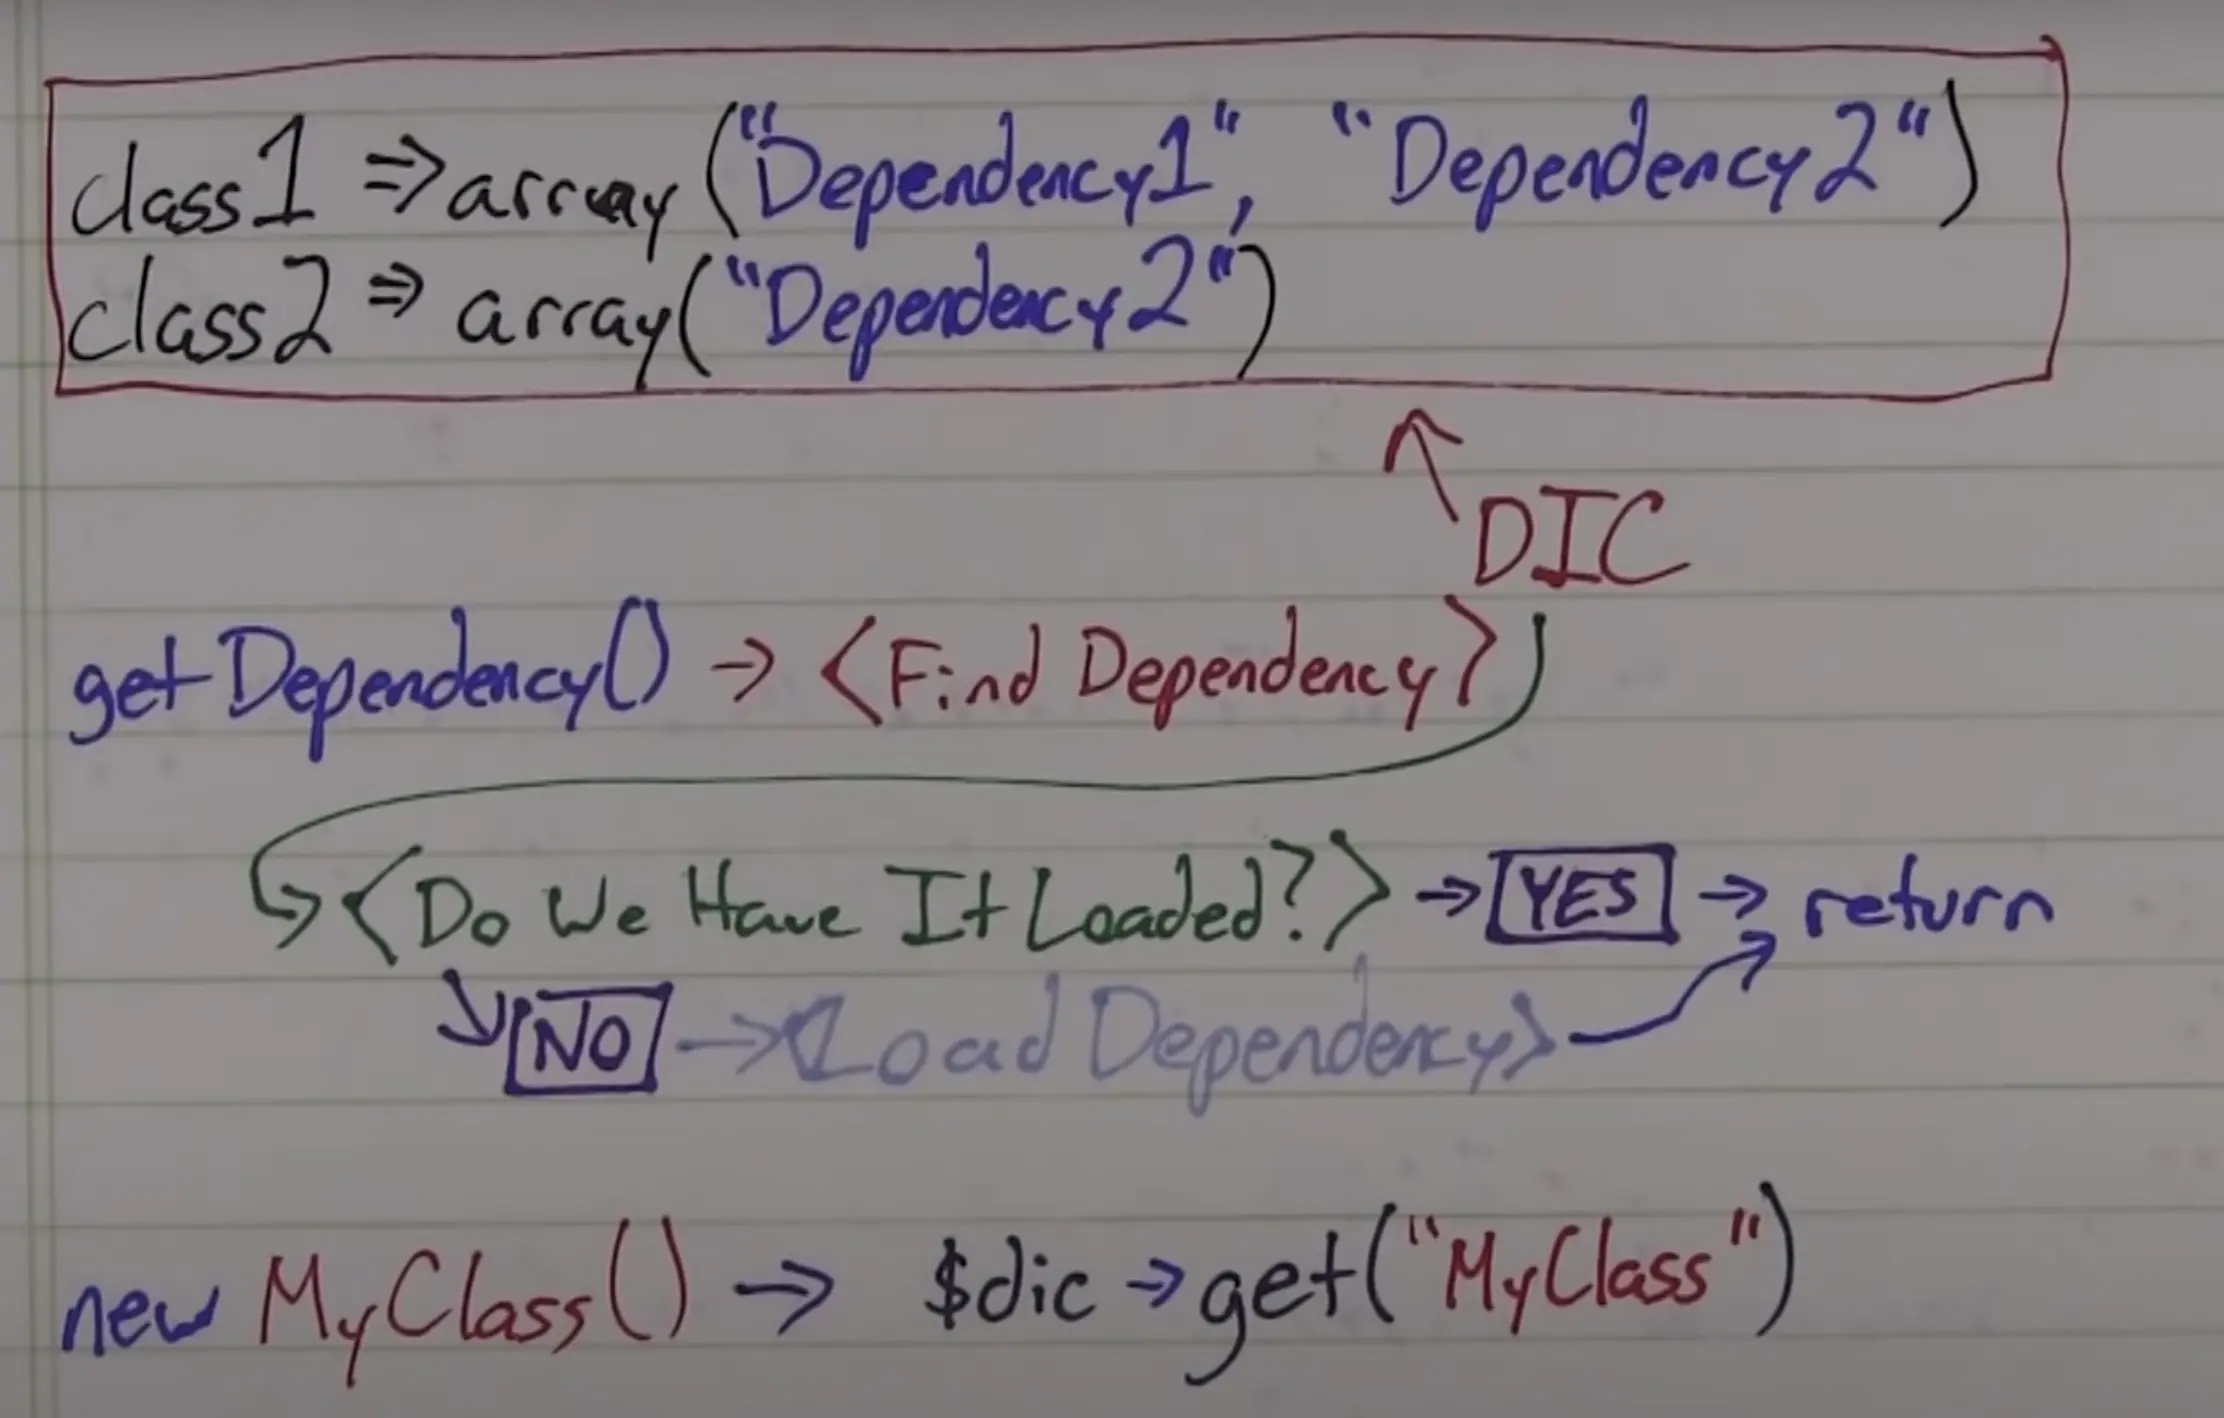 class1 => array("Dependency1", "Dependency2")
class2 => array("Dependency2")
DIC
getDependency() -> <Find Dependency>
<Do We Have It Loaded?> -> YES -> return
NO -> <Load Dependency>
new MyClass() -> $dic->get("MyClass")